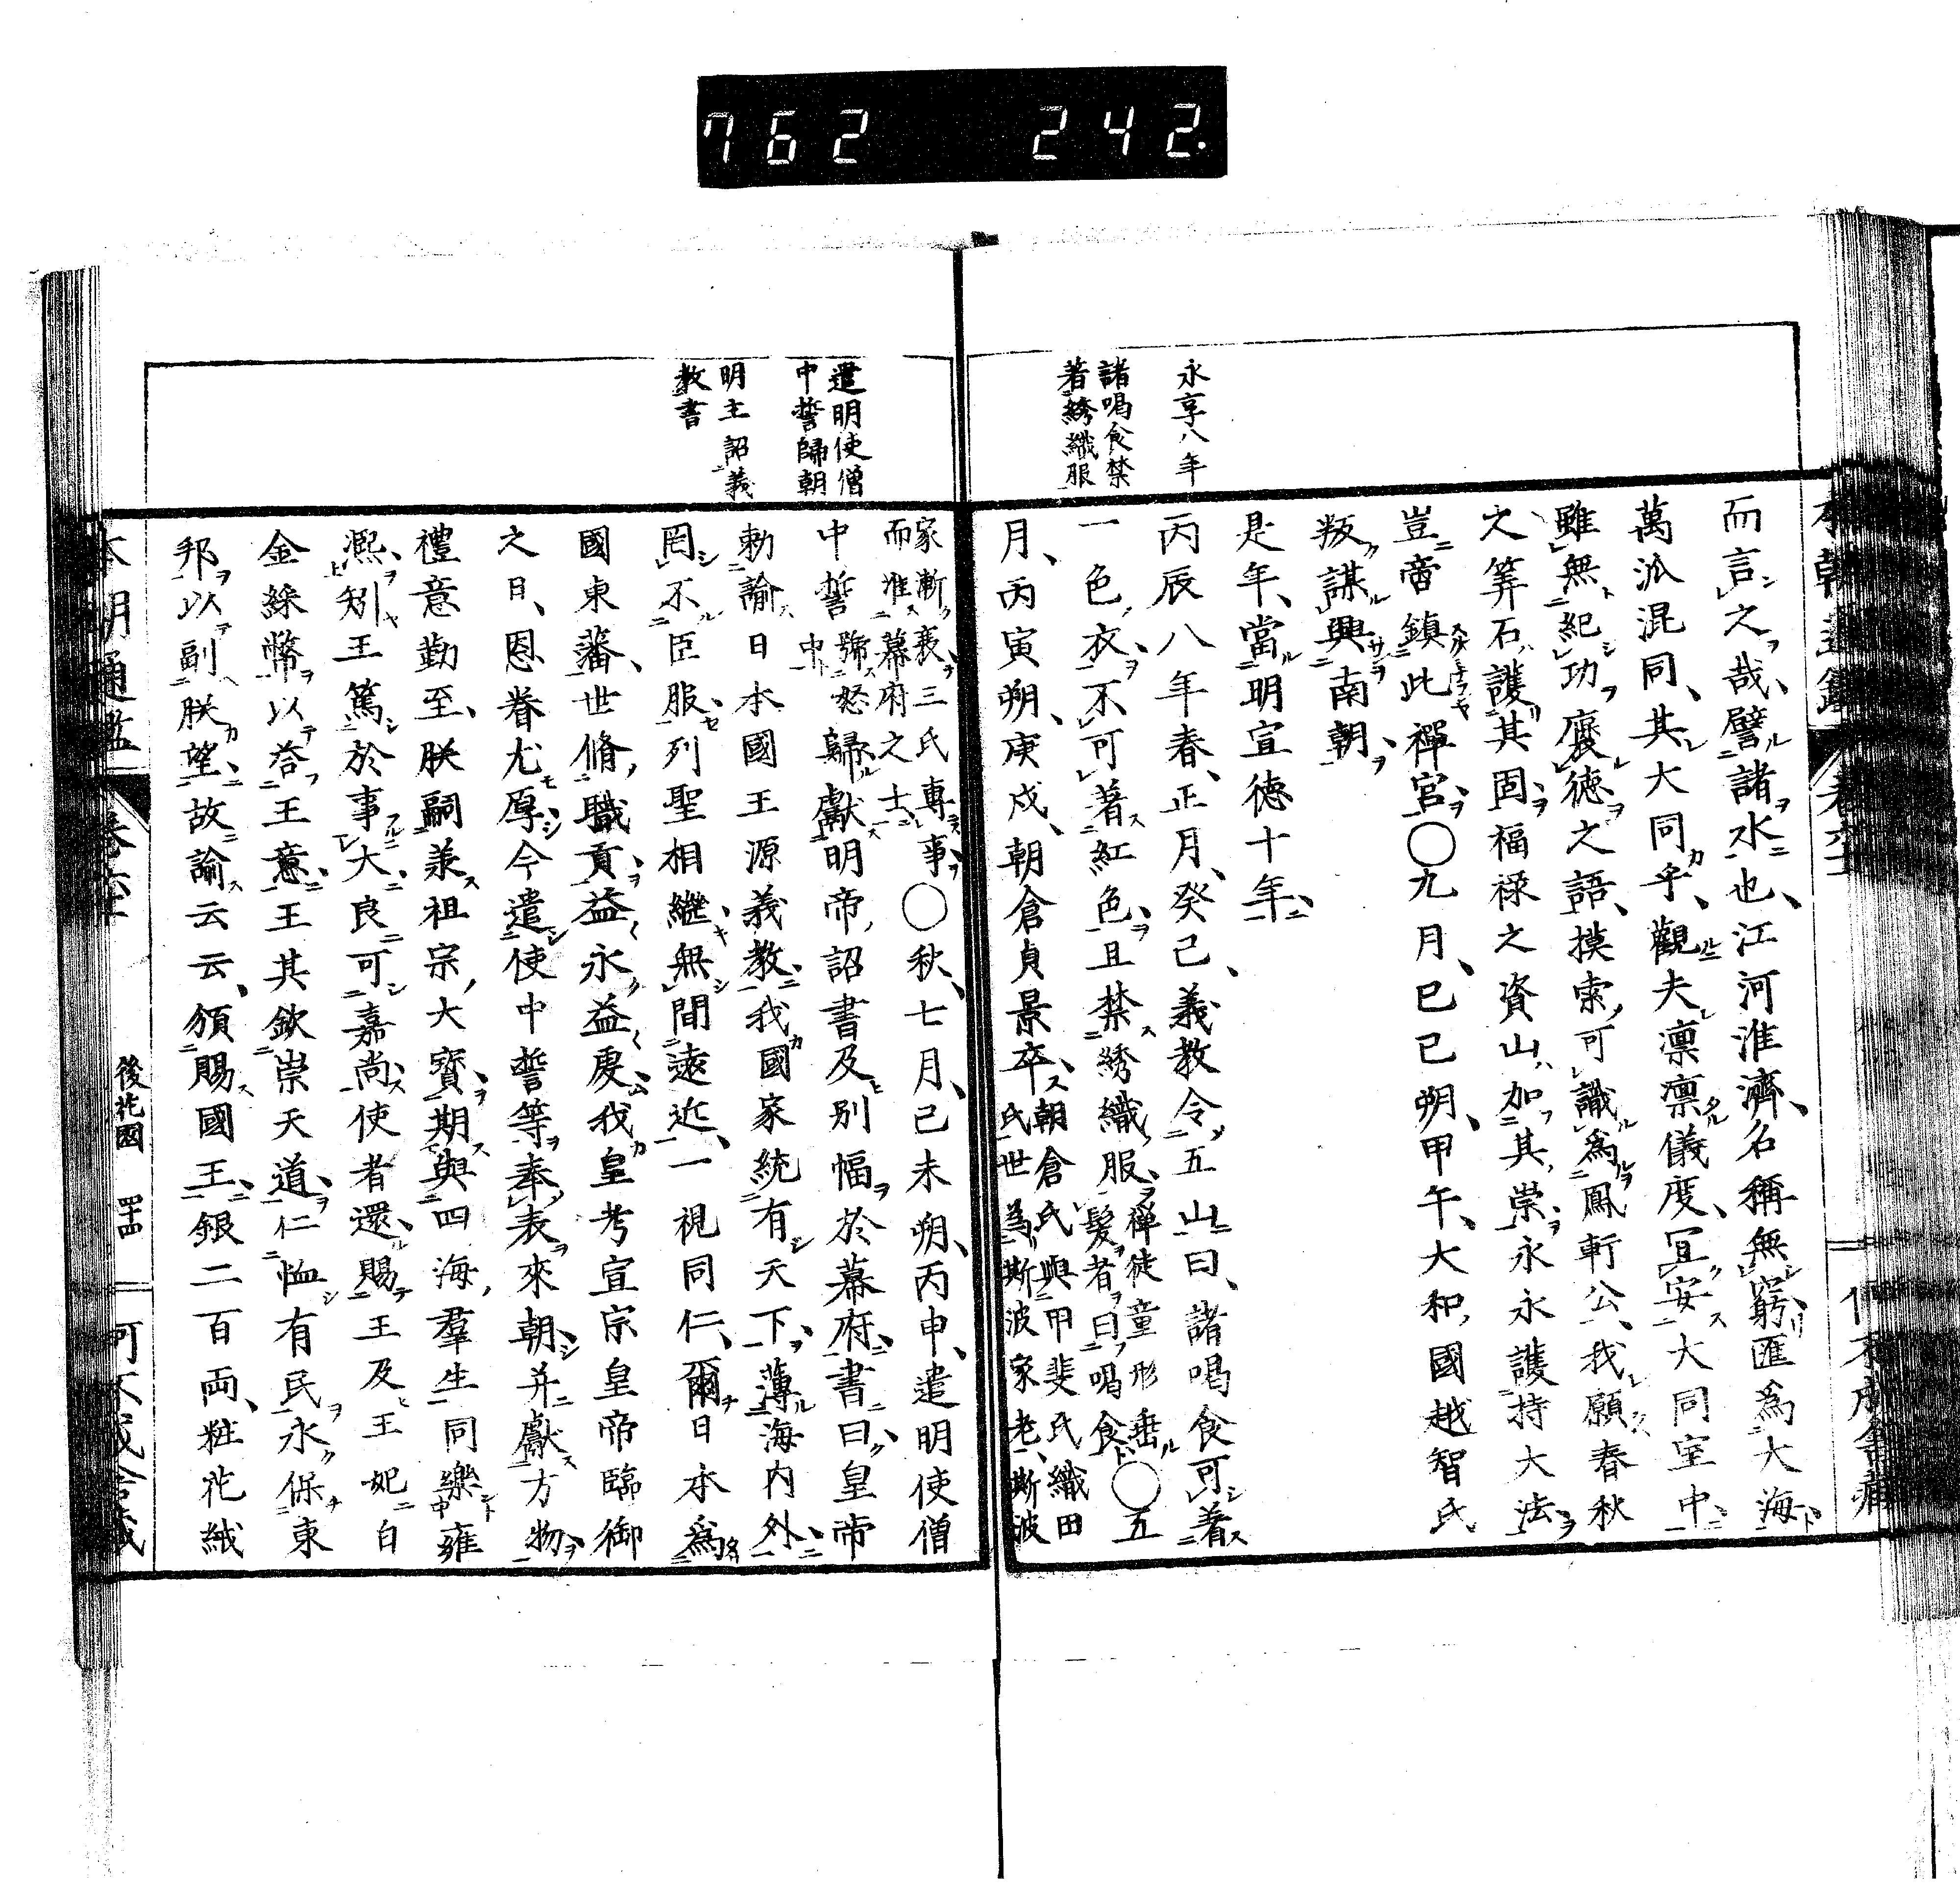 762 242.
永享八年
諸喝食禁
著綉織服
而言之哉、譬諸水也、江河淮濟、名稱無窮、匯為大海
萬派混同、其大同乎、觀夫凛凛儀度、冝安大同室中
雖無紀功襃德之語、摸索可識為鳳軒公、我願春秋
之筭、石護其固、福禄之資、山加其崇、永永護持大法
豈啻鎮此禪宮〇九月、已巳朔、甲午、大和國越智氏
叛謀興南朝
是年、當明宣徳十年
丙辰八年春、正月、癸己、義教令五山曰、諸喝食可著
一色衣、不可著紅色、且禁綉織服、禅徒童形垂
髮者曰喝食〇五
月、丙寅朔、庚戌、朝倉貞景卒、朝倉氏與甲斐氏織田
氏世為斯波家老、斯波
遣明使僧
中誓歸朝
明主詔義
教書
家漸衰、三氏專事
而准幕府之士〇秋、七月、己未朔、丙申、遣明使僧
中誓號怒中歸獻明帝詔書及別幅於幕府、書曰、皇帝
勅諭日本國王源義教、我國家統有天下、薄海內外
罔不臣服、列聖相繼、無間遠近、一視同仁、爾日本為
國東藩、世脩職貢、益永益虔、我皇考宣宗皇帝臨御
之日、恩眷尤厚、今遣使中誓等奉表來朝、并獻方物
禮意勤至、朕嗣承祖宗大寳、期與四海羣生同樂雍
熈、矧王篤於事大、良可嘉尚、使者還、賜王及王妃白
金綵幣、以荅王意、王其欽崇天道、仁恤有民、永保東
邦、以副朕望、故諭云云、頒賜國王、銀二百両、粧花絨
本朝通鑑 卷六十 後花園 四十四